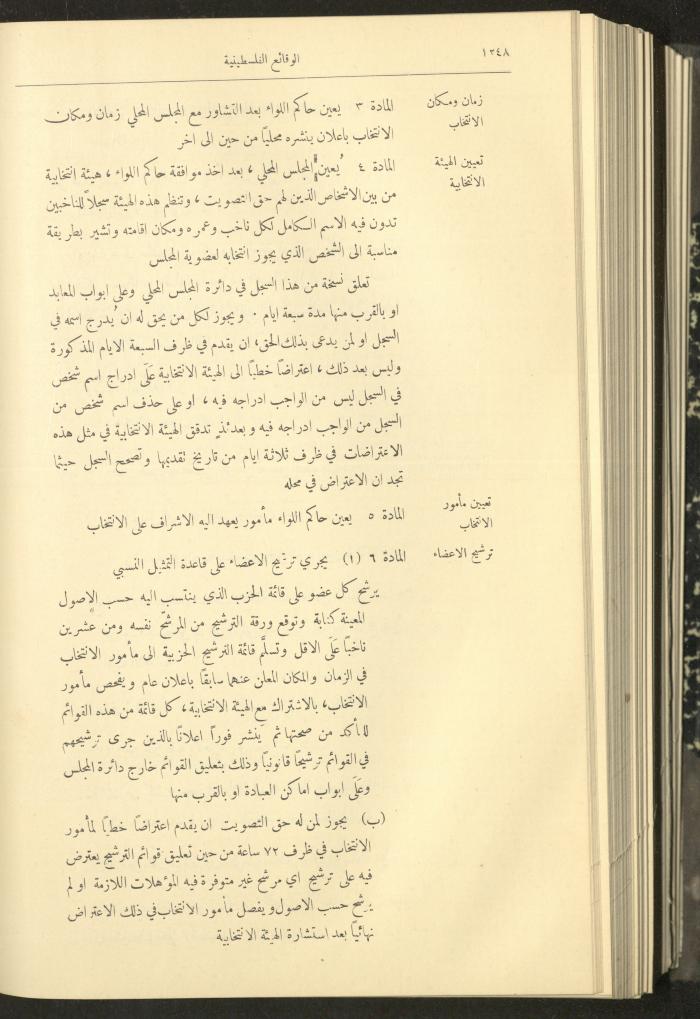 ١٣٤٨
الوقائع الفلسطينية
زمان ومكان
الانتخاب
المادة ٣ يعين حاكم اللواء بعد التشاور مع المجلس المحلي زمان ومكان
الانتخاب باعلان ينشره محليًا من حين الى اخر
تعيين الهيئة
الانتخابية
المادة ٤ يُعين المجلس المحلي، بعد اخذ موافقة حاكم اللواء، هيئة انتخابية
من بين الاشخاص الذين لهم حق التصويت، وتنظم هذه الهيئة سجلاً للناخبين
تدون فيه الاسم الكامل لكل ناخب وعمره ومكان اقامته وتشير بطريقة
مناسبة الى الشخص الذي يجوز انتخابه لعضوية المجلس
تعلق نسخة من هذا السجل في دائرة المجلس المحلي وعلى ابواب المعابد
او بالقرب منها مدة سبعة ايام . ويجوز لكل من يحق له ان يُدرج اسمه في
السجل او لمن يدعى بذلك الحق، ان يقدم في ظرف السبعة الايام المذكورة
وليس بعد ذلك، اعتراضًا خطيًا الى الهيئة الانتخابية عَلَى ادراج اسم شخص
في السجل ليس من الواجب ادراجه فيه، او على حذف اسم شخص من
السجل من الواجب ادراجه فيه وبعدئذٍ تدقق الهيئة الانتخابية في مثل هذه
الاعتراضات في ظرف ثلاثة ايام من تاريخ تقديمها وتصحح السجل حيثما
تجد ان الاعتراض في محله
تعيين مأمور
الانتخاب
المادة ٥ يعين حاكم اللواء مأمور يعهد اليه الاشراف على الانتخاب
ترشيح الاعضاء
المادة ٦ (١) يجري ترشيح الاعضاء على قاعدة التمثيل النسبي
يرشح كل عضو على قائمة الحزب الذي ينتسب اليه حسب الاصول
المعينة كتابة وتوقع ورقة الترشيح من المرشح نفسه ومن عشرين
ناخبًا عَلَى الاقل وتسلَّم قائمة الترشيح الحزبية الى مأمور الانتخاب
في الزمان والمكان المعلن عنهما سابقًا باعلان عام ويفحص مأمور
الانتخاب، بالاشتراك مع الهيئة الانتخابية، كل قائمة من هذه القوائم
للتأكد من صحتها ثم يُنشر فوراً اعلانًا بالذين جرى ترشيحهم
في القوائم ترشيحًا قانونيًا وذلك بتعليق القوائم خارج دائرة المجلس
وعَلَى ابواب اماكن العبادة او بالقرب منها
(ب) يجوز لمن له حق التصويت ان يقدم اعتراضًا خطيًا لمأمور
الانتخاب في ظرف ٧٢ ساعة من حين تعليق قوائم الترشيح يعترض
فيه على ترشيح اي مرشح غير متوفرة فيه المؤهلات اللازمة او لم
يرشح حسب الاصول ويفصل مأمور الانتخاب في ذلك الاعتراض
نهائيًا بعد استشارة الهيئة الانتخابية